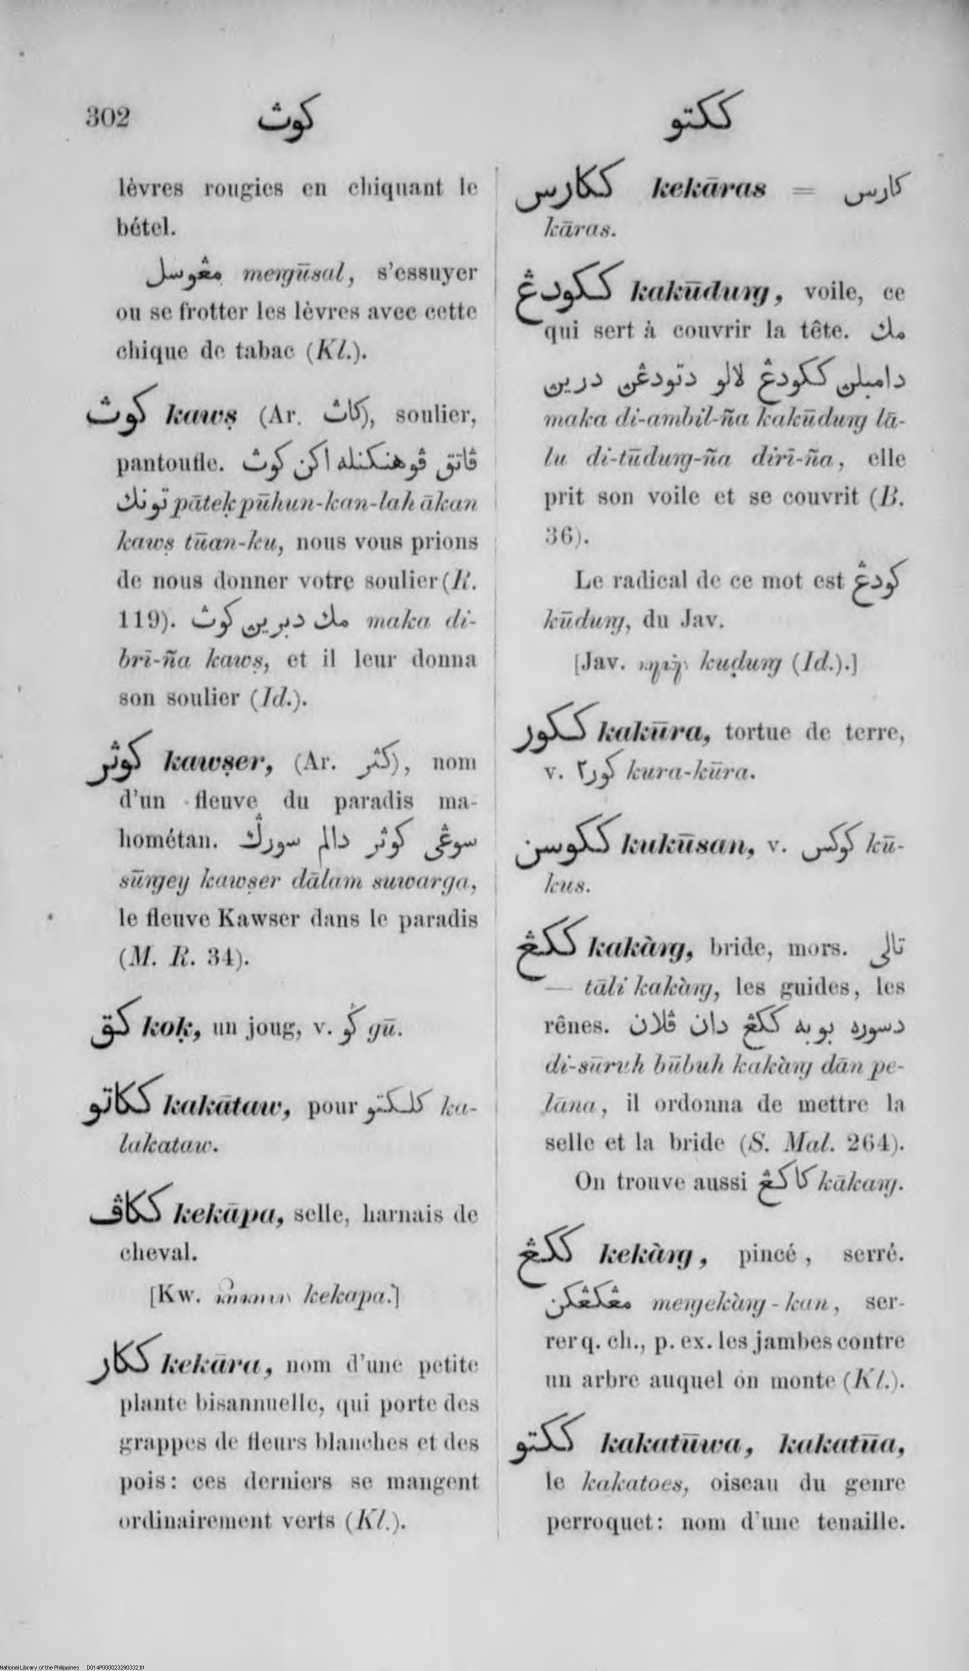 302
كوث
ككتو
lèvres rougies en chiquant le
bétel.
مڠوسل meŋgūsal, s'essuyer
ou se frotter les lèvres avec cette
chique de tabac (Kl.).
كوث kawṣ (Ar. كاث), soulier,
pantoufle. ڤاتق ڤوهنكنله اكن كوث
تونك pāteḳ pūhun-kan-lah ākan
kawṣ tūan-ku, nous vous prions
de nous donner votre soulier (R.
119). مك دبرين كوث maka di-
brī-ña kawṣ, et il leur donna
son soulier (Id.).
كوثر kawṣer, (Ar. كثر), nom
d'un fleuve du paradis ma-
hométan. سوڠى كوثر دالم سورڬ
sūŋgey kawṣer dālam suwarga,
le fleuve Kawser dans le paradis
(M. R. 34).
كق koḳ, un joug, v. ڬو gū.
ككاتو kakātaw, pour كلكتو ka-
lakataw.
ككاڤ kekāpa, selle, harnais de
cheval.
[Kw. kekapa.]
ككار kekāra, nom d'une petite
plante bisannuelle, qui porte des
grappes de fleurs blanches et des
pois: ces derniers se mangent
ordinairement verts (Kl.).
ككارس kekāras = كارس
kāras.
ككودڠ kakūduŋg, voile, ce
qui sert à couvrir la tête. مك
دامبلن ككودڠ لالو دتودڠن درين
maka di-ambil-ña kakūduŋg lā-
lu di-tūduŋg-ña dirī-ña, elle
prit son voile et se couvrit (B.
36).
Le radical de ce mot est كودڠ
kūduŋg, du Jav.
[Jav. kuḍuŋg (Id.).]
ككور kakūra, tortue de terre,
v. كور٢ kura-kūra.
ككوسن kukūsan, v. كوكس kū-
kus.
ككڠ kakàŋg, bride, mors. تالى
— tāli kakàŋg, les guides, les
rênes. دسوره بوبه ككڠ دان ڤلان
di-sūruh būbuh kakàŋg dān pe-
lāna, il ordonna de mettre la
selle et la bride (S. Mal. 264).
On trouve aussi كاكڠ kākaŋg.
ككڠ kekàŋg, pincé, serré.
مڠكڠكن meŋgekàŋg-kan, ser-
rer q. ch., p. ex. les jambes contre
un arbre auquel on monte (Kl.).
ككتو kakatūwa, kakatūa,
le kakatoes, oiseau du genre
perroquet: nom d'une tenaille.
National Library of the Philippines